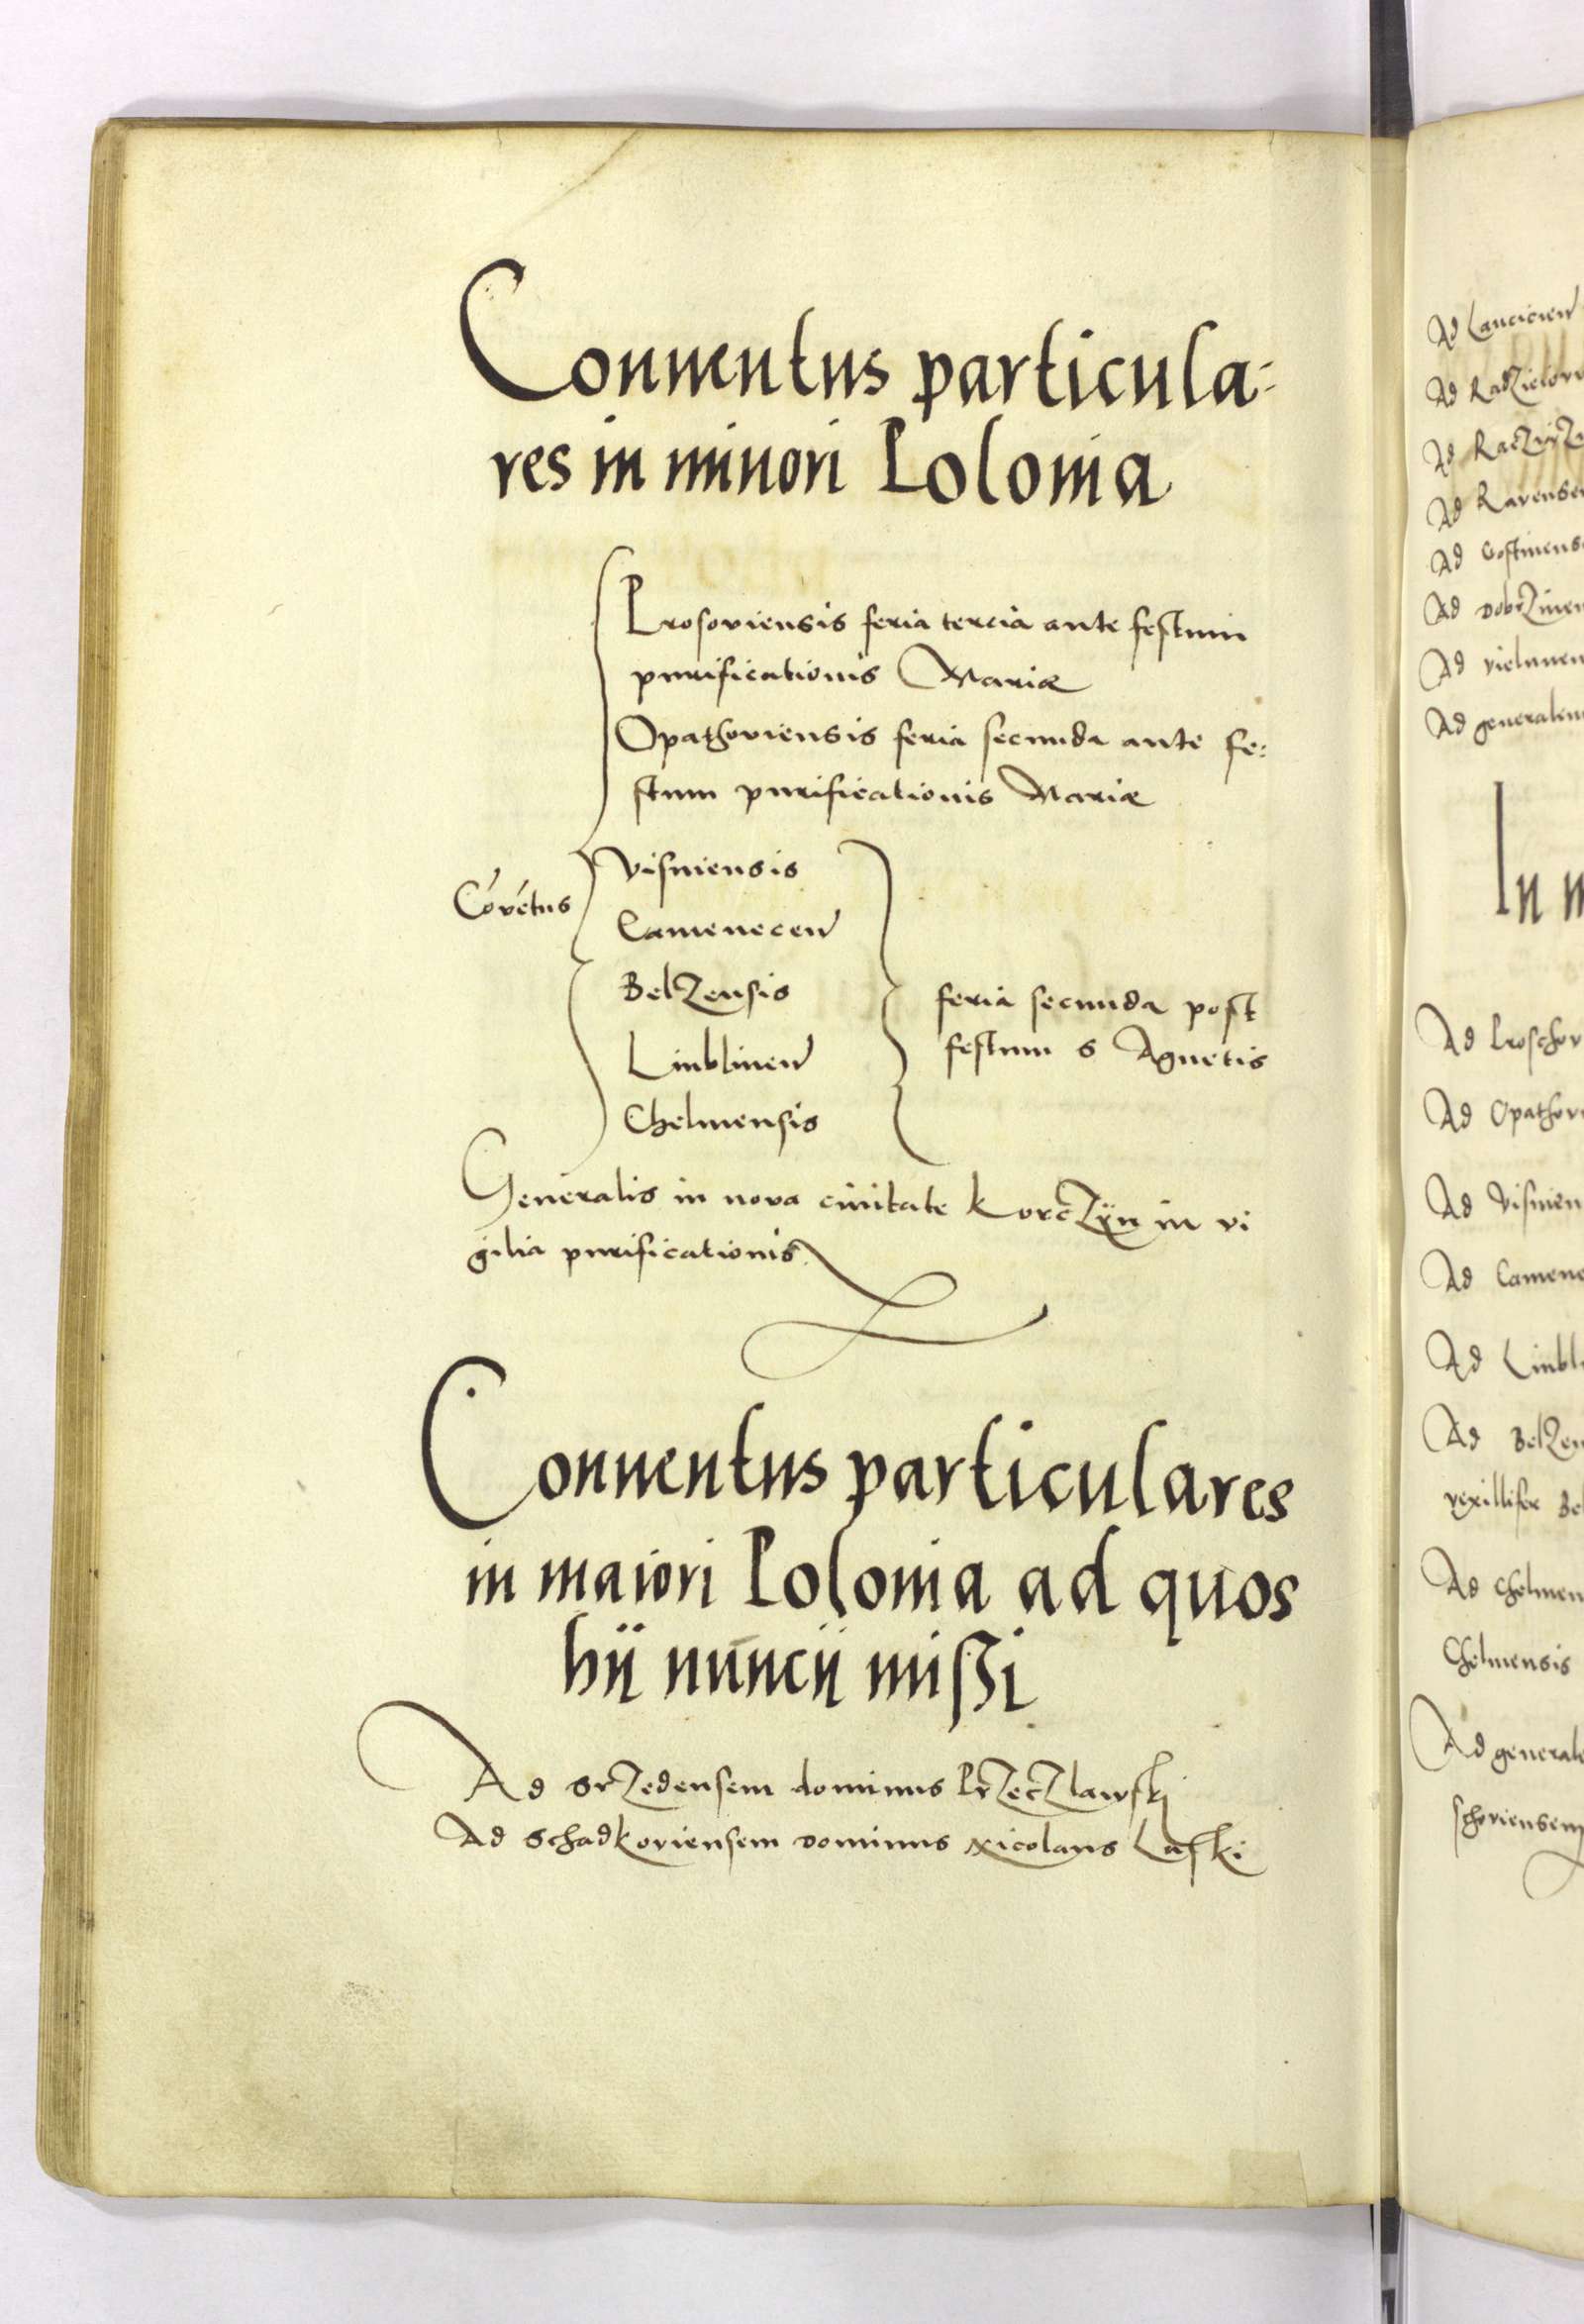 Conuentus particula-
res in minori Polonia
Prosoviensis feria tercia ante festum
purificationis Mariæ
Opathoviensis feria secunda ante fe-
stum purificationis Mariæ
Cōvētus
Visniensis
Camenecen
Belzensis
Liublinen
Chelmensis
feria secunda post
festum S Agnetis
Generalis in nova ciuitate Korczÿn in vi
gilia purificationis
Conuentus particulares
in maiori Polonia ad quos
hii nuncii missi
Ad Srzedensem dominus Przeczlawski
Ad Schadkoviensem dominus Nicolaus Laski
Ad Lancicien
Ad
Ad
Ad Ravense
Ad Gostinens
Ad Dobrzinen
Ad Vielunen
Ad generalem
In m
Ad Proschov
Ad Opathov
Ad Visnien
Ad Camene
Ad Liubl
Ad Belzen
vexillifer Bel
Ad Chelmen
Chelmensis
Ad generale
schoviensem